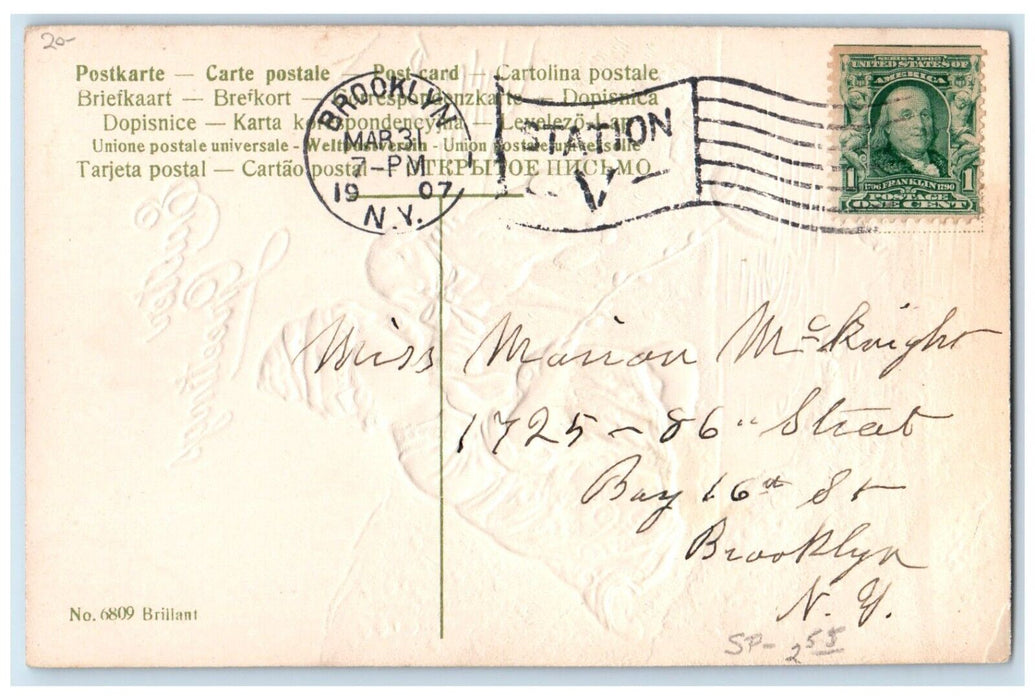 20-
Postkarte — Carte postale — Post-card — Cartolina postale
Briefkaart — Brefkort — Correspondenzkarte — Dopisnica
Dopisnice — Karta korespondencyjna — Levelező-Lap
Unione postale universale - Weltpostverein - Union postale universelle
Tarjeta postal — Cartão postal — ОТКРЫТОЕ ПИСЬМО
BROOKLYN
MAR 31
7-PM
1907
N.Y.
STATION
V
SERIES 1902
UNITED STATES OF
AMERICA
1 1706 FRANKLIN 1790 1
POSTAGE
ONE CENT
Miss Marion McKnight
1725 - 86" Street
Bay 16th St
Brooklyn
N.Y.
No. 6809 Brillant
SP- 255